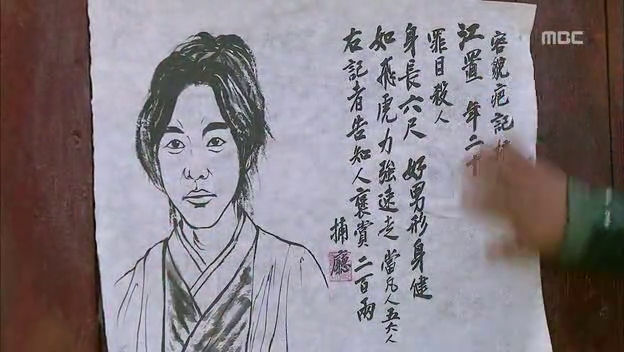 MBC
容貌疤記
江置 年二十
罪目殺人
身長六尺 好男形身健
如飛虎力強速走 當凡人五六人
右記者告知人褒賞二百兩
捕廳